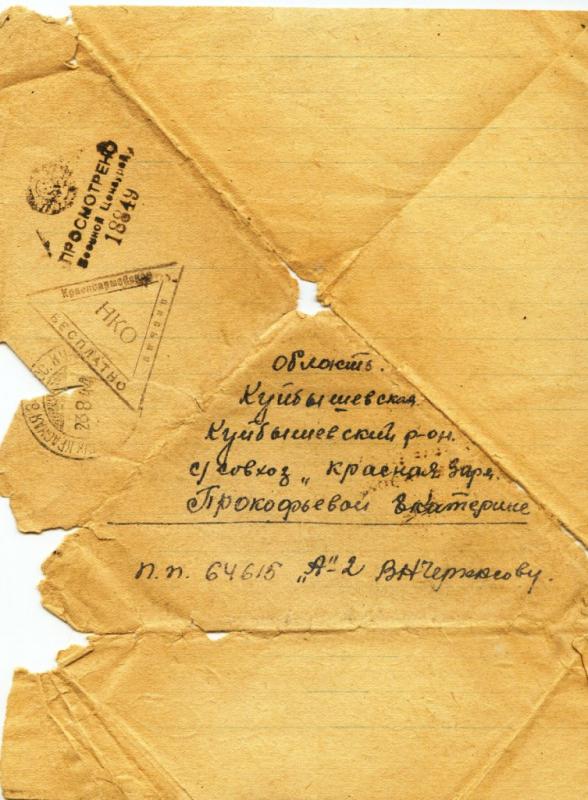 ПРОСМОТРЕНО
Военной Цензурой
18849
Красноармейское
НКО
БЕСПЛАТНО
23 8
КРАСНАЯ
Область.
Куйбышевская
Куйбышевский р-он.
с/совхоз „Красная Заря.
Прокофьевой Екатерине
п.п. 64615 „А"-2 ВНЧеркасову.